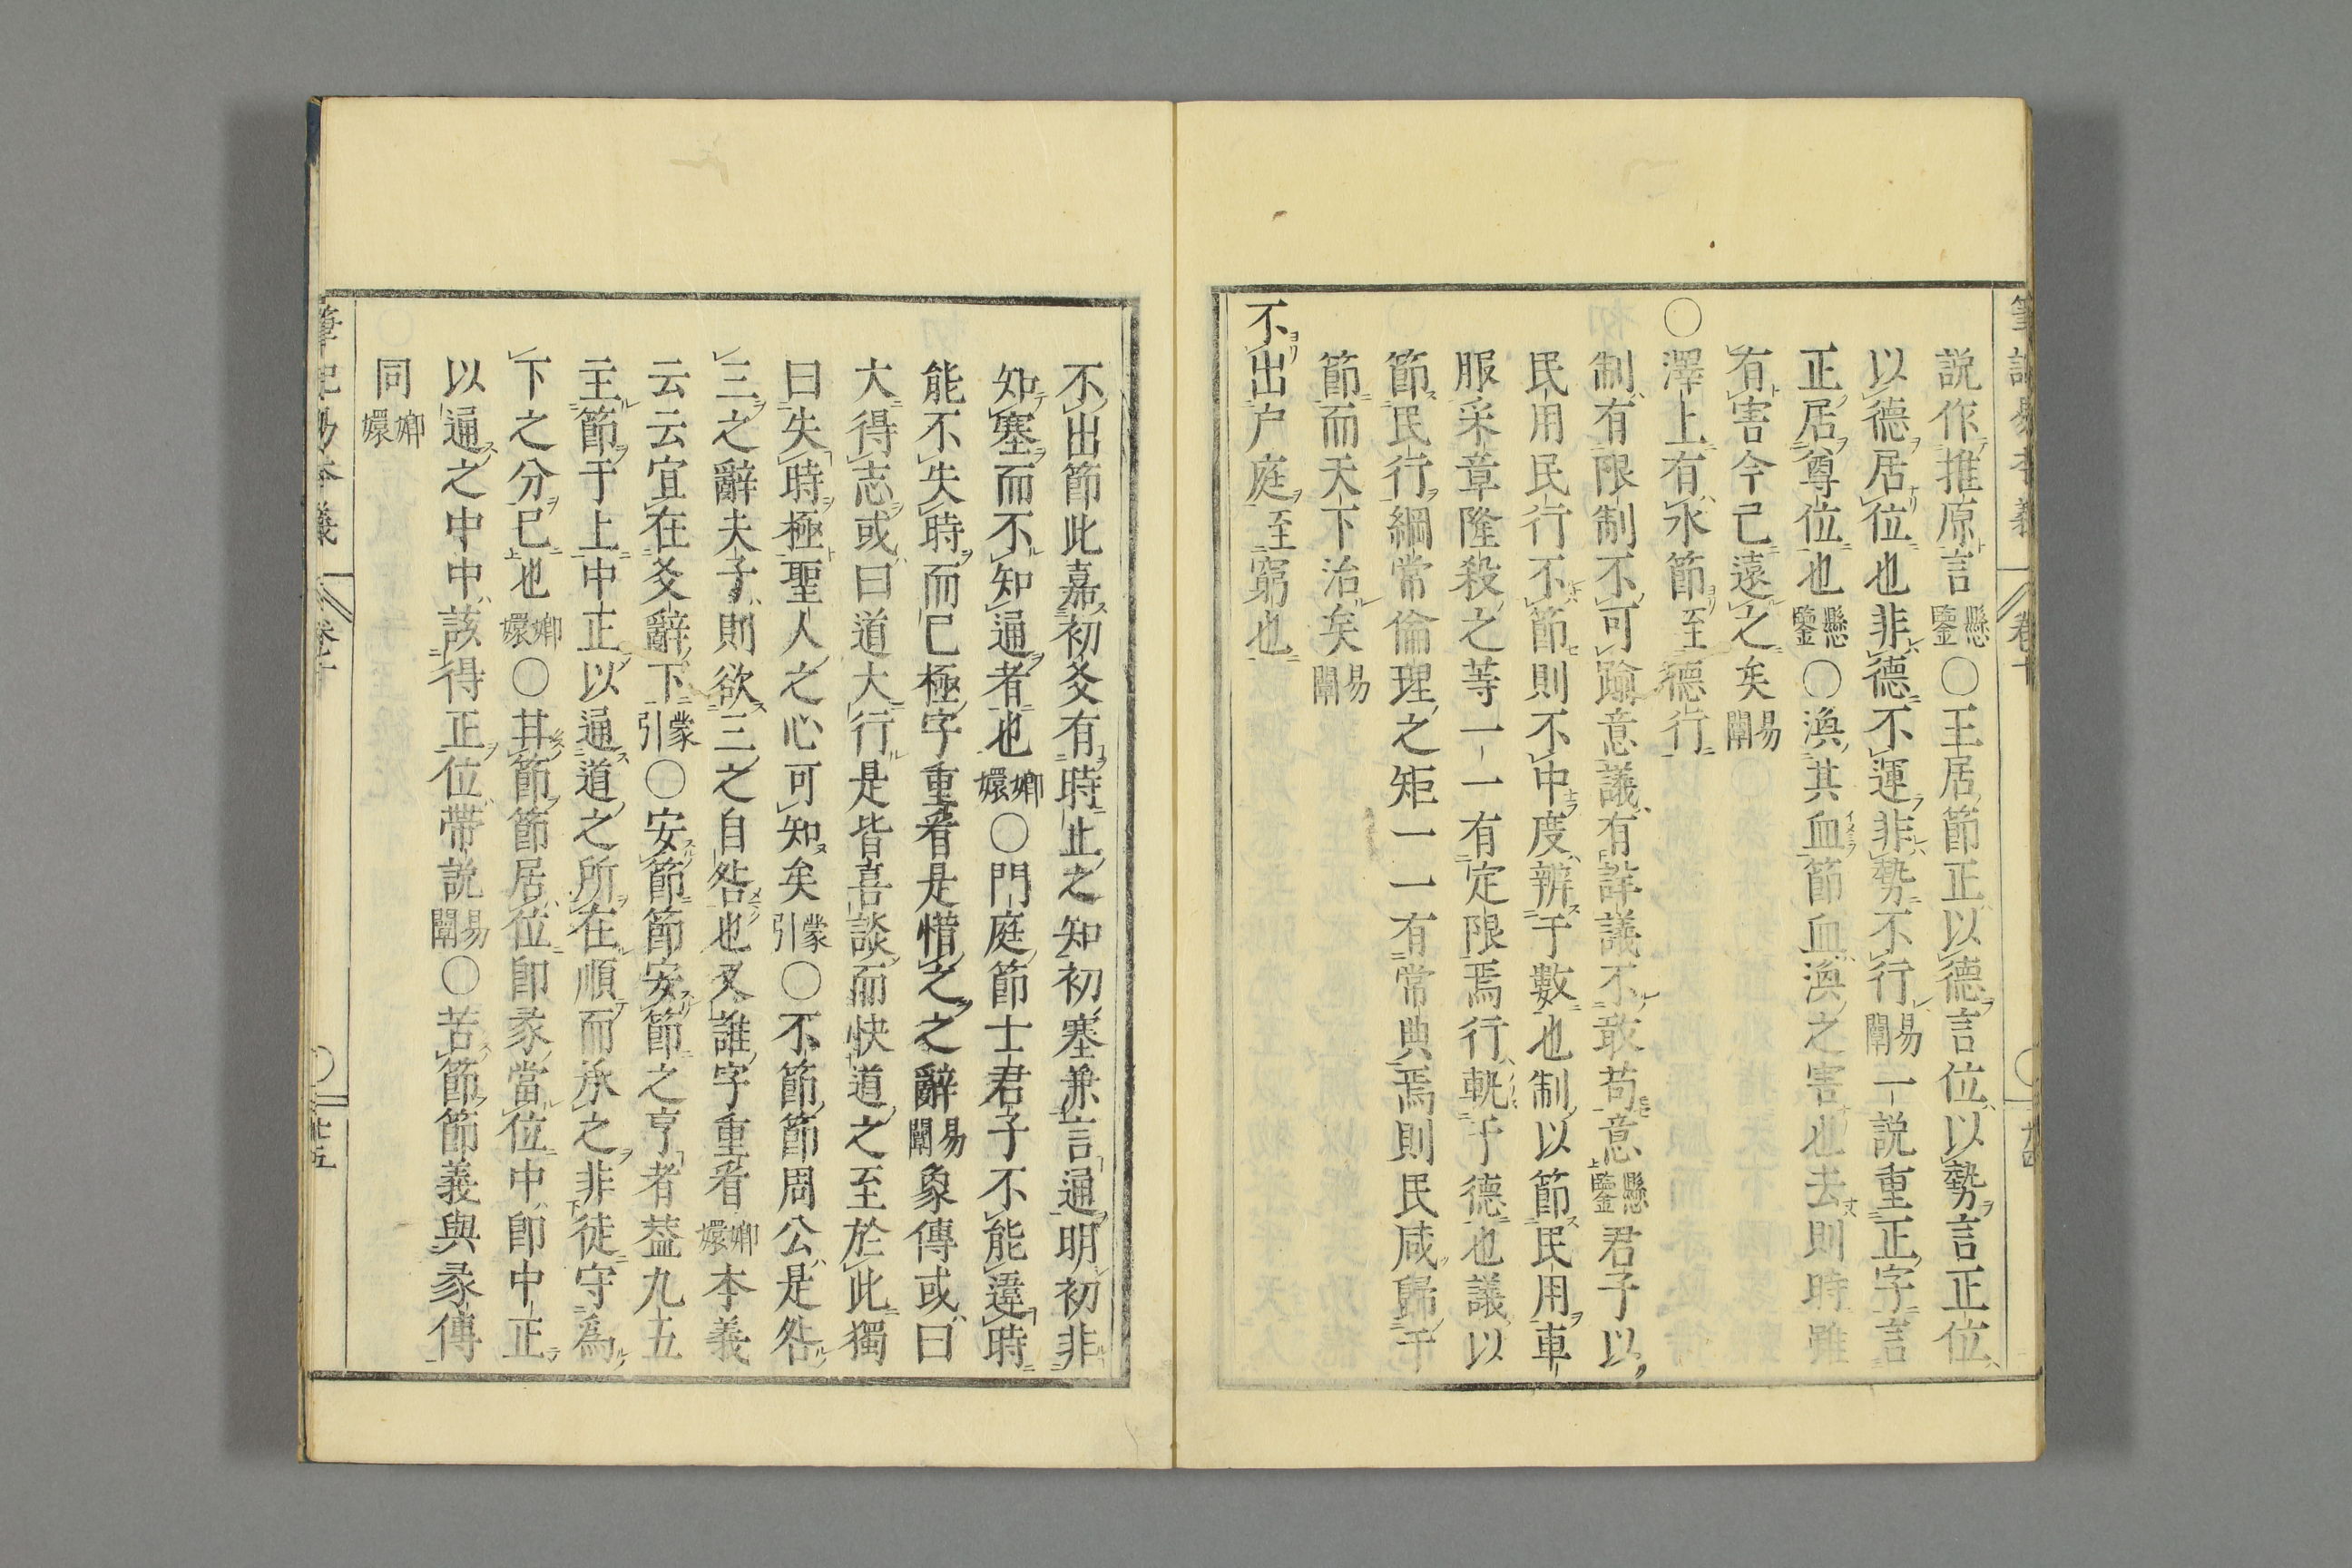 說作推原言懸鑒〇王居節正以德言位以勢言正位
以德居位也非德不運非勢不行易闡一說重正字言
正居尊位也懸鑒〇渙其血節血渙之害也去則時雖
有害今已遠之矣易闡
〇澤上有水節至德行
制有限制不可踰意議有詳議不敢苟意懸鑒君子以
民用民行不節則不中度辨于數也制以節民用車
服采章隆殺之等一一有定限焉行軌于德也議以
節民行綱常倫理之矩一一有常典焉則民咸歸于
節而天下治矣易闡
不出户庭至窮也
不出節此嘉初爻有時止之知初塞兼言通明初非
知塞而不知通者也嫏嬛〇門庭節士君子不能違時
能不失時而已極字重看是惜之之辭易闡象傳或曰
大得志或曰道大行是皆喜談而快道之至於此獨
曰失時極聖人之心可知矣蒙引〇不節節周公是咎
三之辭夫子則欲三之自咎也又誰字重看嫏嬛本義
云云宜在爻辭下蒙引〇安節節安節之亨者葢九五
主節于上中正以通道之所在順而承之非徒守為
下之分已也嫏嬛〇甘節節居位卽彖當位中卽中正
以通之中中該得正位帶說易闡〇苦節節義與彖傳
同嫏嬛
卷十
廿五